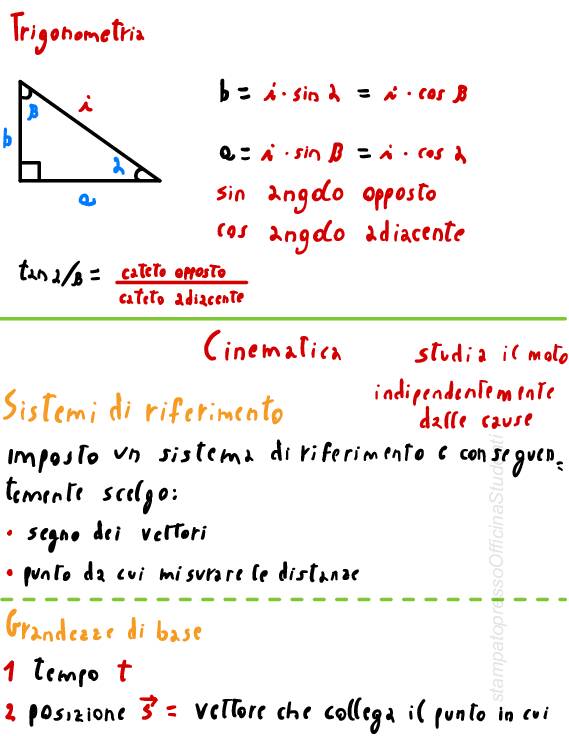 Trigonometria
b = i · sin α = i · cos β
β
i
b
a = i · sin β = i · cos α
α
a
sin angolo opposto
cos angolo adiacente
tan α/β = cateto opposto
cateto adiacente
Cinematica
studia il moto
indipendentemente
dalle cause
Sistemi di riferimento
imposto un sistema di riferimento e conseguen=
temente scelgo:
• segno dei vettori
• punto da cui misurare le distanze
Grandezze di base
1 tempo t
2 posizione s⃗ = vettore che collega il punto in cui
stampatopressoOfficinaStudenti